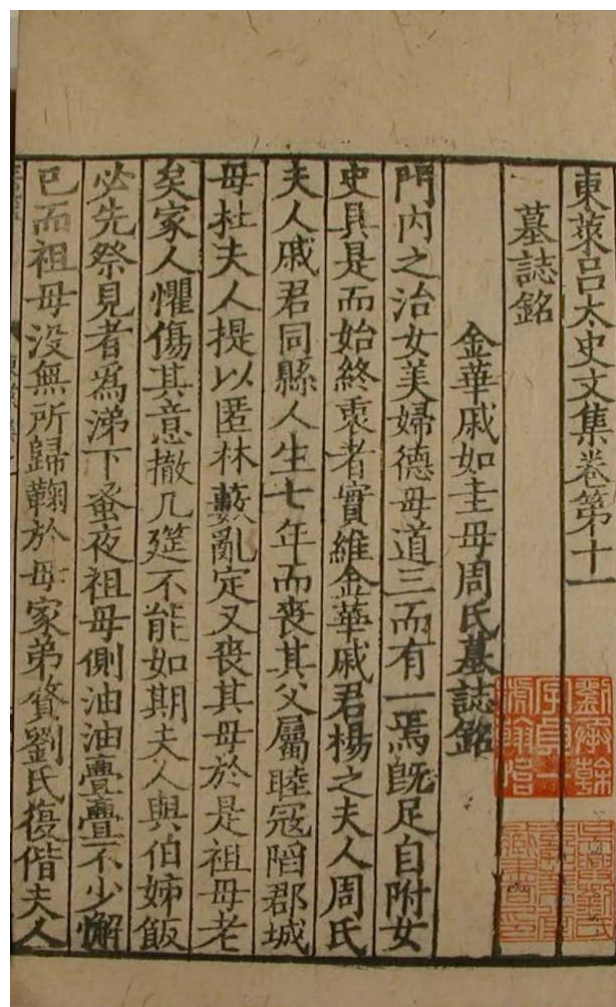 東萊呂太史文集卷第十一
墓誌銘
金華戚如圭母周氏墓誌銘
門内之治女美婦德母道三而有一焉旣足自附女
史具是而始終衷者實維金華戚君楊之夫人周氏
夫人戚君同縣人生七年而喪其父屬睦冦陷郡城
母杜夫人提以匿林藪亂定又喪其母於是祖母老
矣家人懼傷其意撤几筵不能如期夫人與伯姊飯
必先祭見者爲涕下蚤夜祖母側油油亹亹不少懈
已而祖母没無所歸鞠於母家弟贅劉氏復偕夫人
劉承幹
字貞一
號翰怡
吳興劉氏
嘉業堂
藏書印